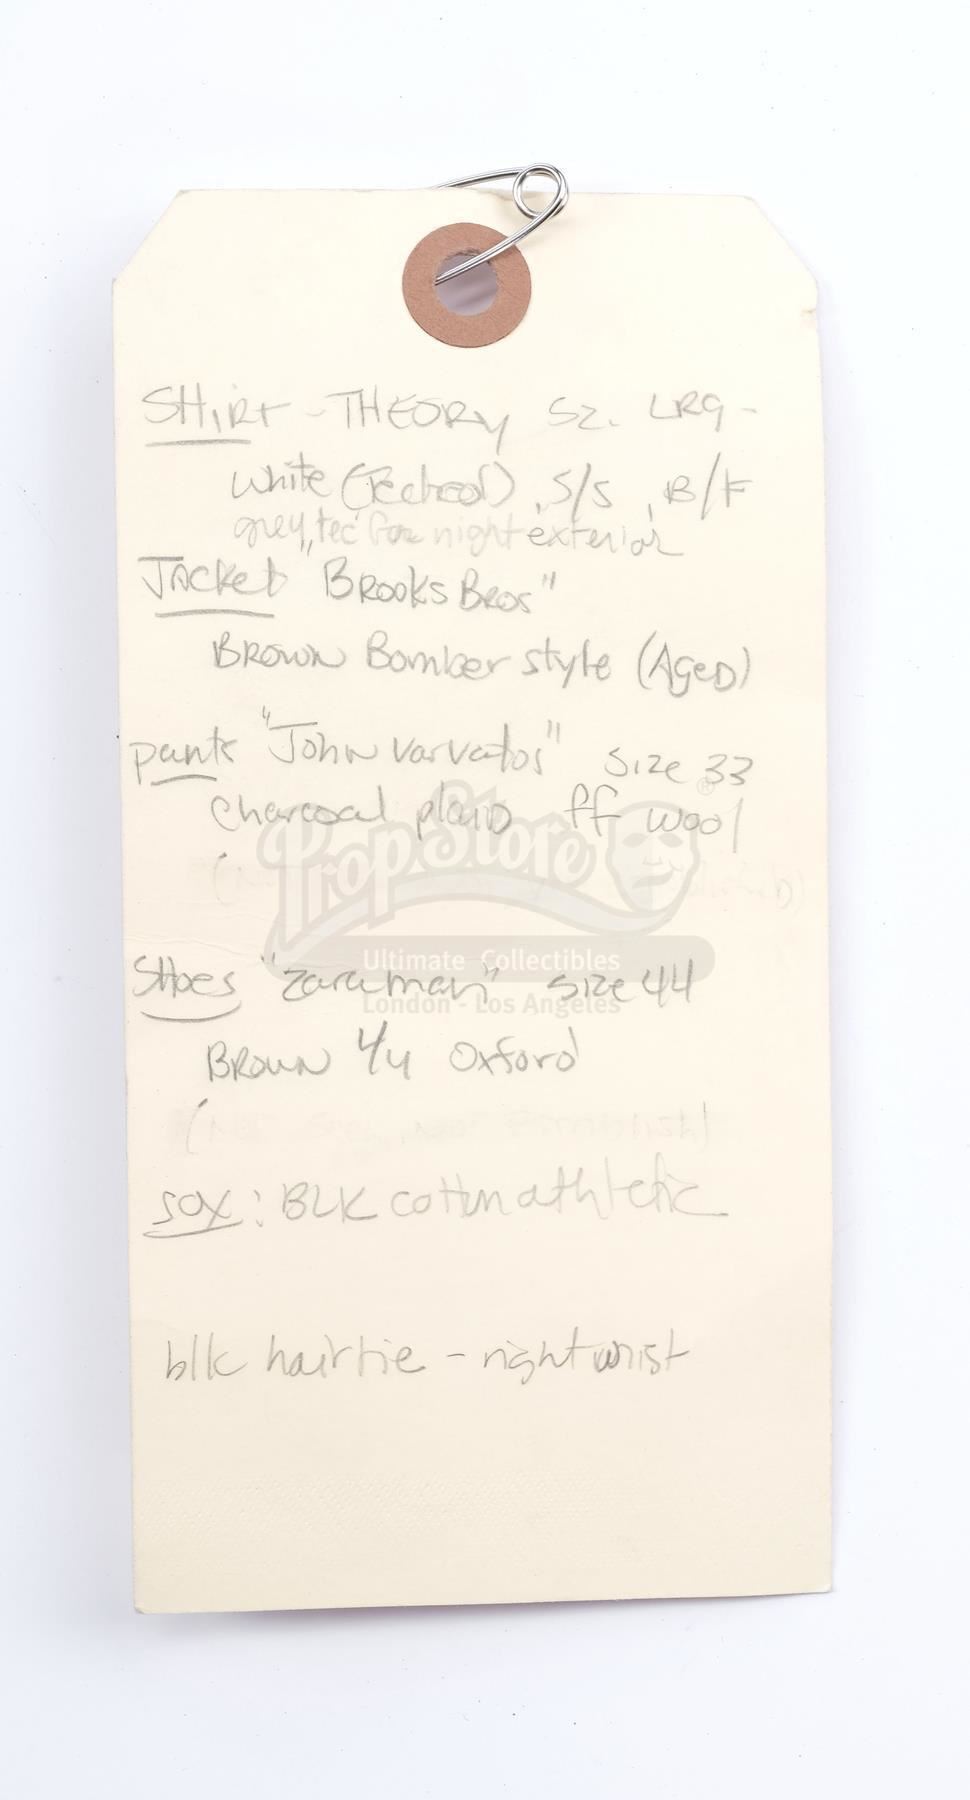 SHIRT - THEORY SZ. LRG -
White (Teched) , S/S , B/F
grey tec for night exterior
JACKET "BROOKS BROS"
BROWN Bomber style (AGED)
pants "John varvatos" Size 33
Charcoal plaid ff wool
PropStore®
Ultimate Collectibles
London - Los Angeles
SHoes "zara man" Size 44
BROWN 4/4 Oxford
sox : BLK cotton athletic
blk hairtie - right wrist